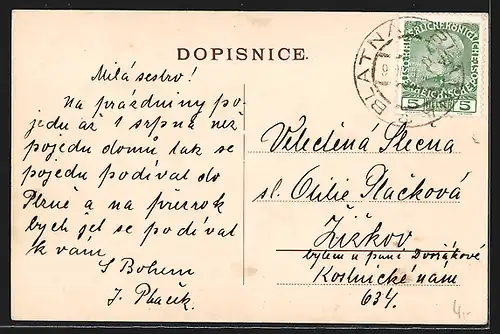 DOPISNICE.
Milá sestro!
Na prázdniny po-
jedu až 1 srpna než
pojedu domů tak se
pojedu podívat do
Plzně a na přízrok
bych jel se podívat
k vám
S Bohem
J. Placek.
BLATNÁ
KAISERLICHEKÖNIGLICHE
5 5
Velectěná Slecna
sl. Otilie Plačková
Žižkov
bytem u paní Dvořákové
Kostnické nám
634.
4,-